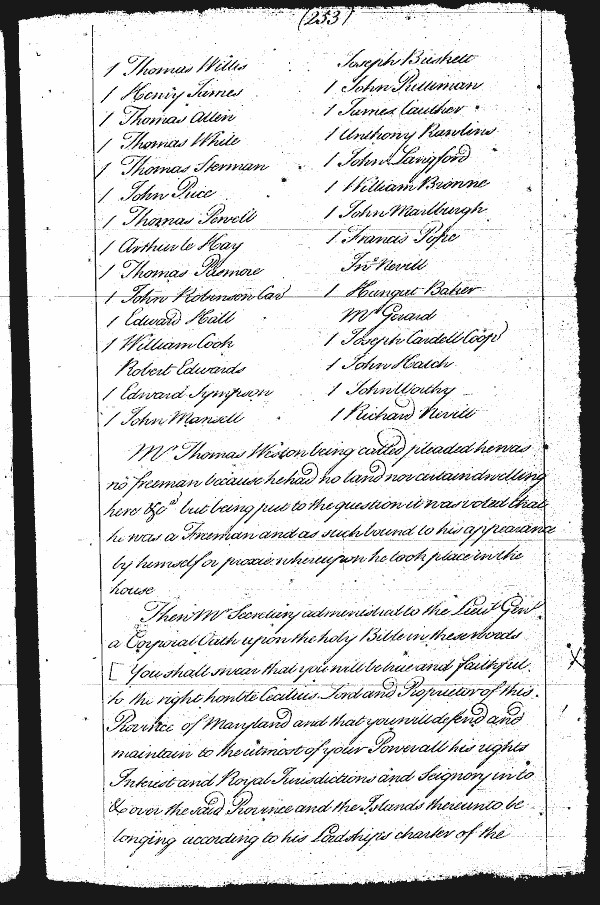 (233)
1 Thomas Willis
1 Henry James
1 Thomas Allen
1 Thomas White
1 Thomas Sterman
1 John Price
1 Thomas Powell
1 Arthur le Hay
1 Thomas Pasmore
1 John Robinson Car
1 Edward Hall
1 William Cook
Robert Edwards
1 Edward Sympson
1 John Mansell
Joseph
1 John
1 James Cauther
1 Anthony Rawlins
1 John Langford
1 William Bronne
1 John Marlburgh
1 Francis Pope
Jno Nevill
1 Hungat Baker
Mr Gerard
1 Joseph Cardell Coop
1 John Hatch
1 John Worthy
1 Richard Nevill
Mr Thomas Weston being called pleaded he was
no freeman because he had no land nor certain dwelling
here &ca but being put to the question it was voted that
he was a Freeman and as such bound to his appearance
by himself or proxie whereupon he took place in the
house
Then Mr Secretary administred to the Lieut Genl
a Corporal Oath upon the holy Bible in these words
[ You shall swear that you will be true and faithful
to the right honble Cecilius Lord and Proprietor of this
Province of Maryland and that you will defend and
maintain to the utmost of your Power all his rights
Interest and Royal Jurisdictions and Seignory in to
& over the said Province and the Islands thereunto be
longing according to his Lordships charter of the